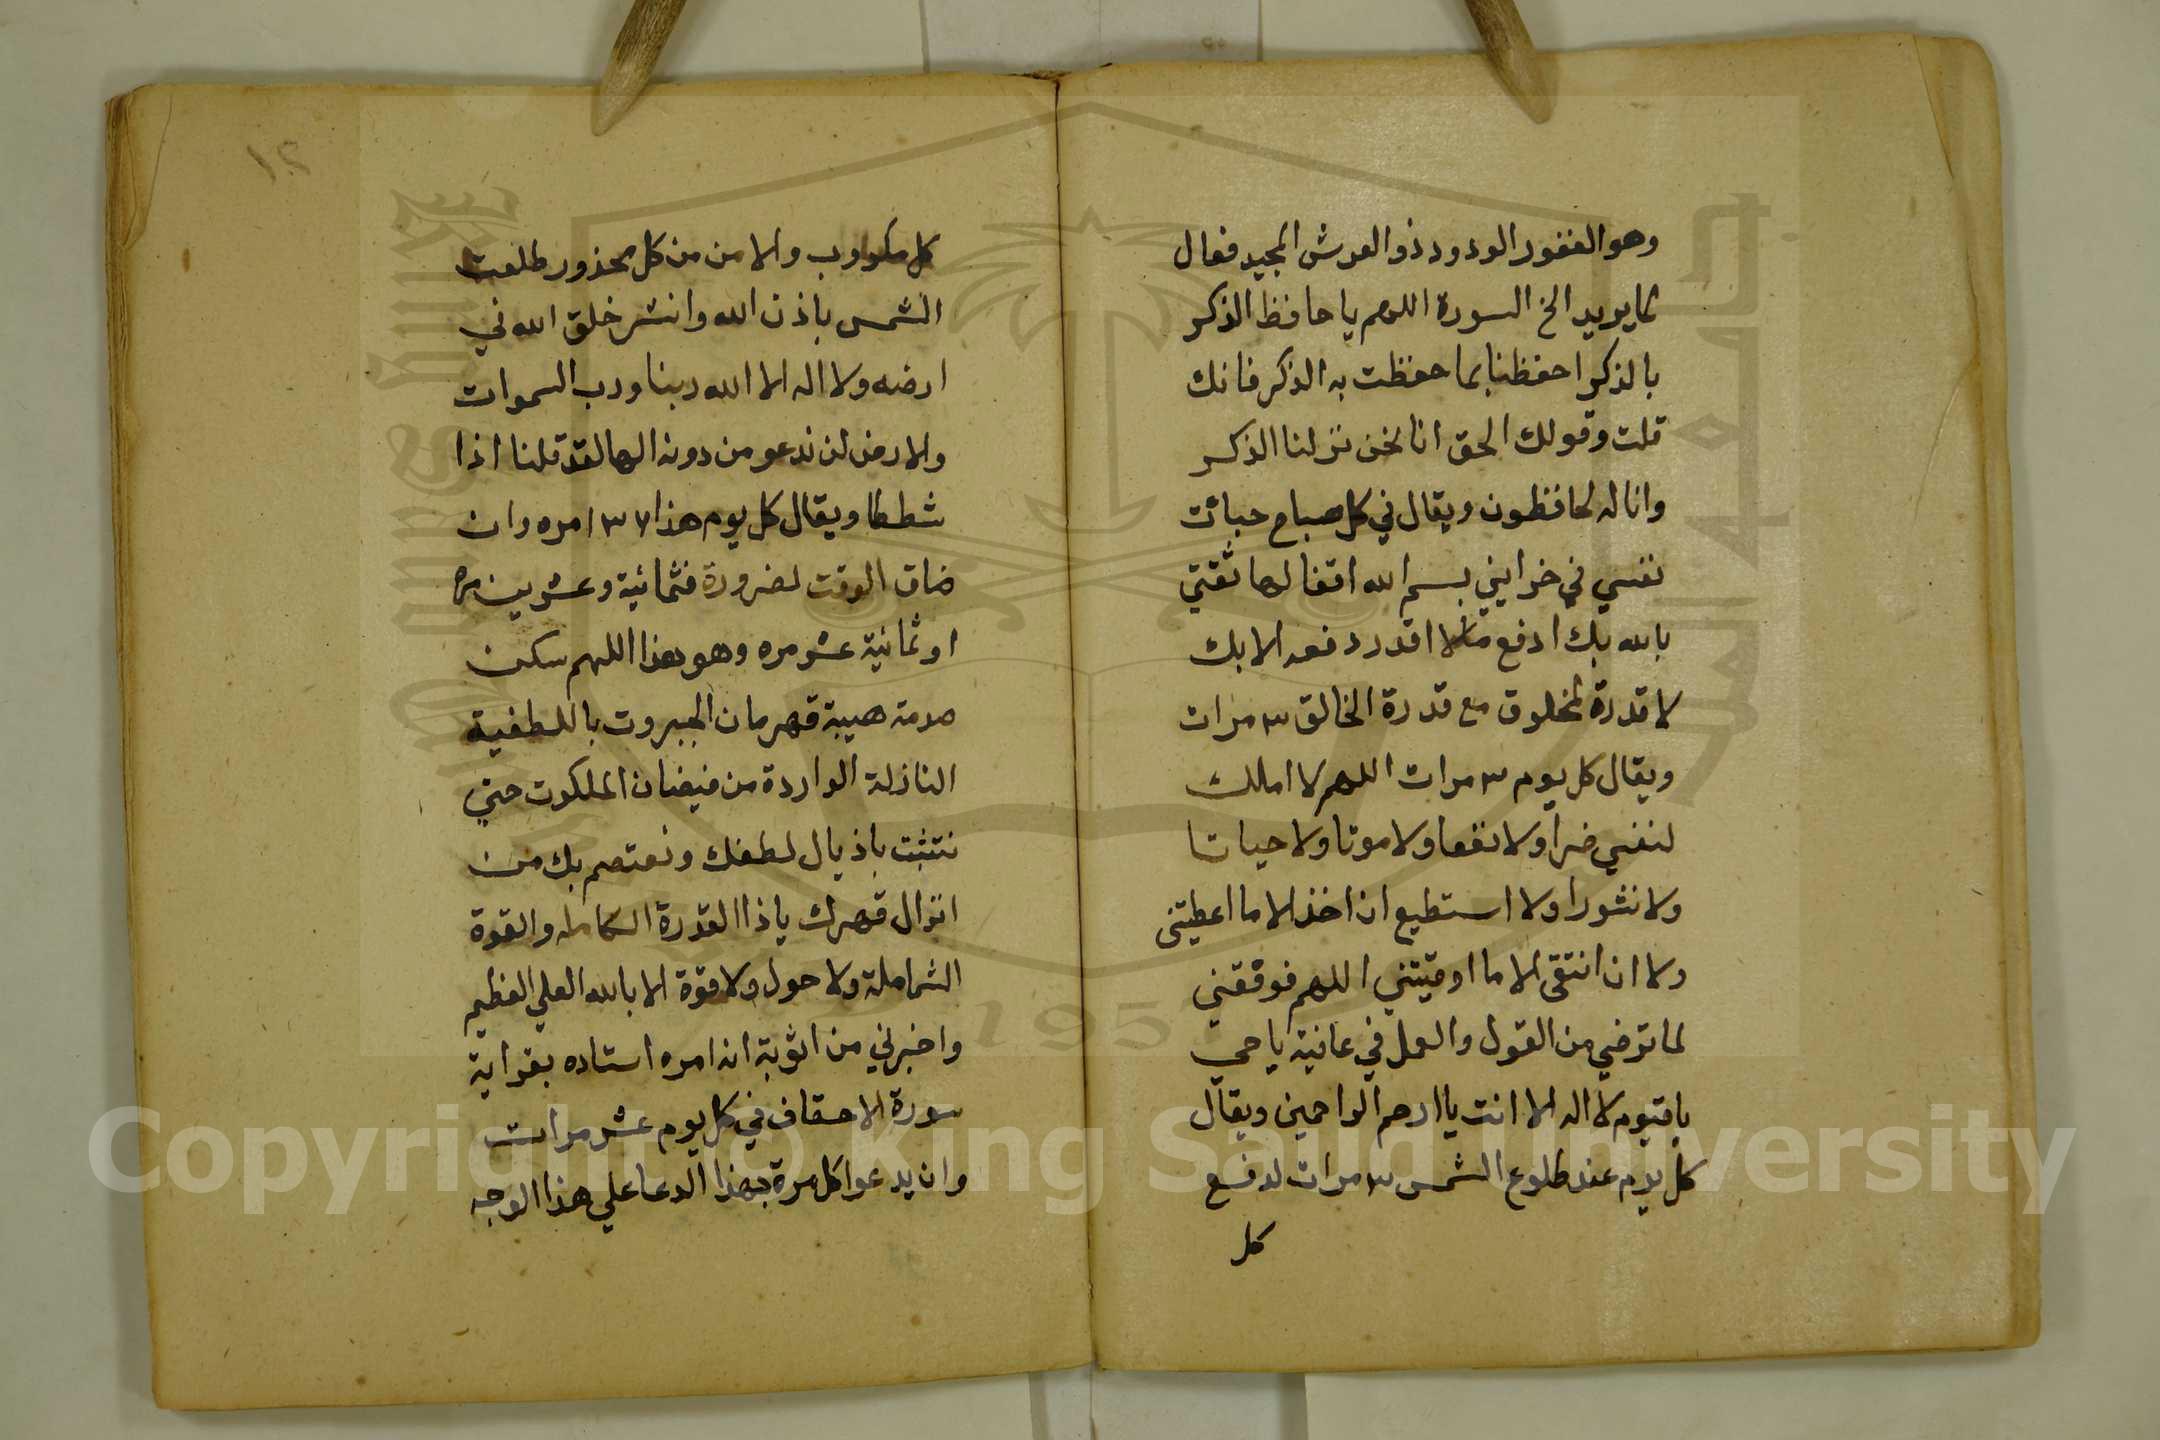 وهو الغفور الودود ذو العرش المجيد فعال
لما يريد الخ السورة اللهم يا حافظ الذكر
بالذكر احفظنا بما حفظت به الذكر فانك
قلت وقولك الحق انا نحن نزلنا الذكر
وانا له لحافظون ويقال في كل صباح خبائت
نفسي في خزايني بسم الله اقفالها ثقتي
بالله بك ادفع ما لا اقدر دفعه الا بك
لا قدرة لمخلوق مع قدرة الخالق ٣ مرات
ويقال كل يوم ٣ مرات اللهم لا املك
لنفسي ضرا ولا نفعا ولا موتا ولا حياتا
ولا نشورا ولا استطيع ان اخذ الا ما اعطيتني
ولا ان انتقى الا ما اوقيتني اللهم فوفقني
لما ترضي من القول والعمل في عافية يا حي
يا قيوم لا اله الا انت يا ارحم الراحمين ويقال
كل يوم عند طلوع الشمس ٣ مرات لدفع
كل
١٢
كل مكروب والامن من كل محذور طلعت
الشمس باذن الله وانتشر خلق الله في
ارضه ولا اله الا الله ربنا ورب السموات
والارض لن ندعو من دونه الها لقد قلنا اذا
شططا ويقال كل يوم هذا ١٣٧ مره وان
ضاق الوقت لضرورة فثمانية وعشرين مره
او ثمانية عشر مره وهو هذا اللهم سكن
صدمة هيبة قهرمان الجبروت باللطفية
النازلة الواردة من فيضان الملكوت حتي
نتثبت باذيال لطفك ونعتصم بك من
انزال قهرك يا ذا القدرة الكامله والقوة
الشاملة ولا حول ولا قوة الا بالله العلي العظيم
واخبرني من اثق به انه امره استاده بقراية
سورة الاحقاف في كل يوم عشر مرات
وان يدعوا كل مرة بهذا الدعا علي هذا الوجه
Copyright © King Saud University
King Saud University
جامعة الملك سعود
1957